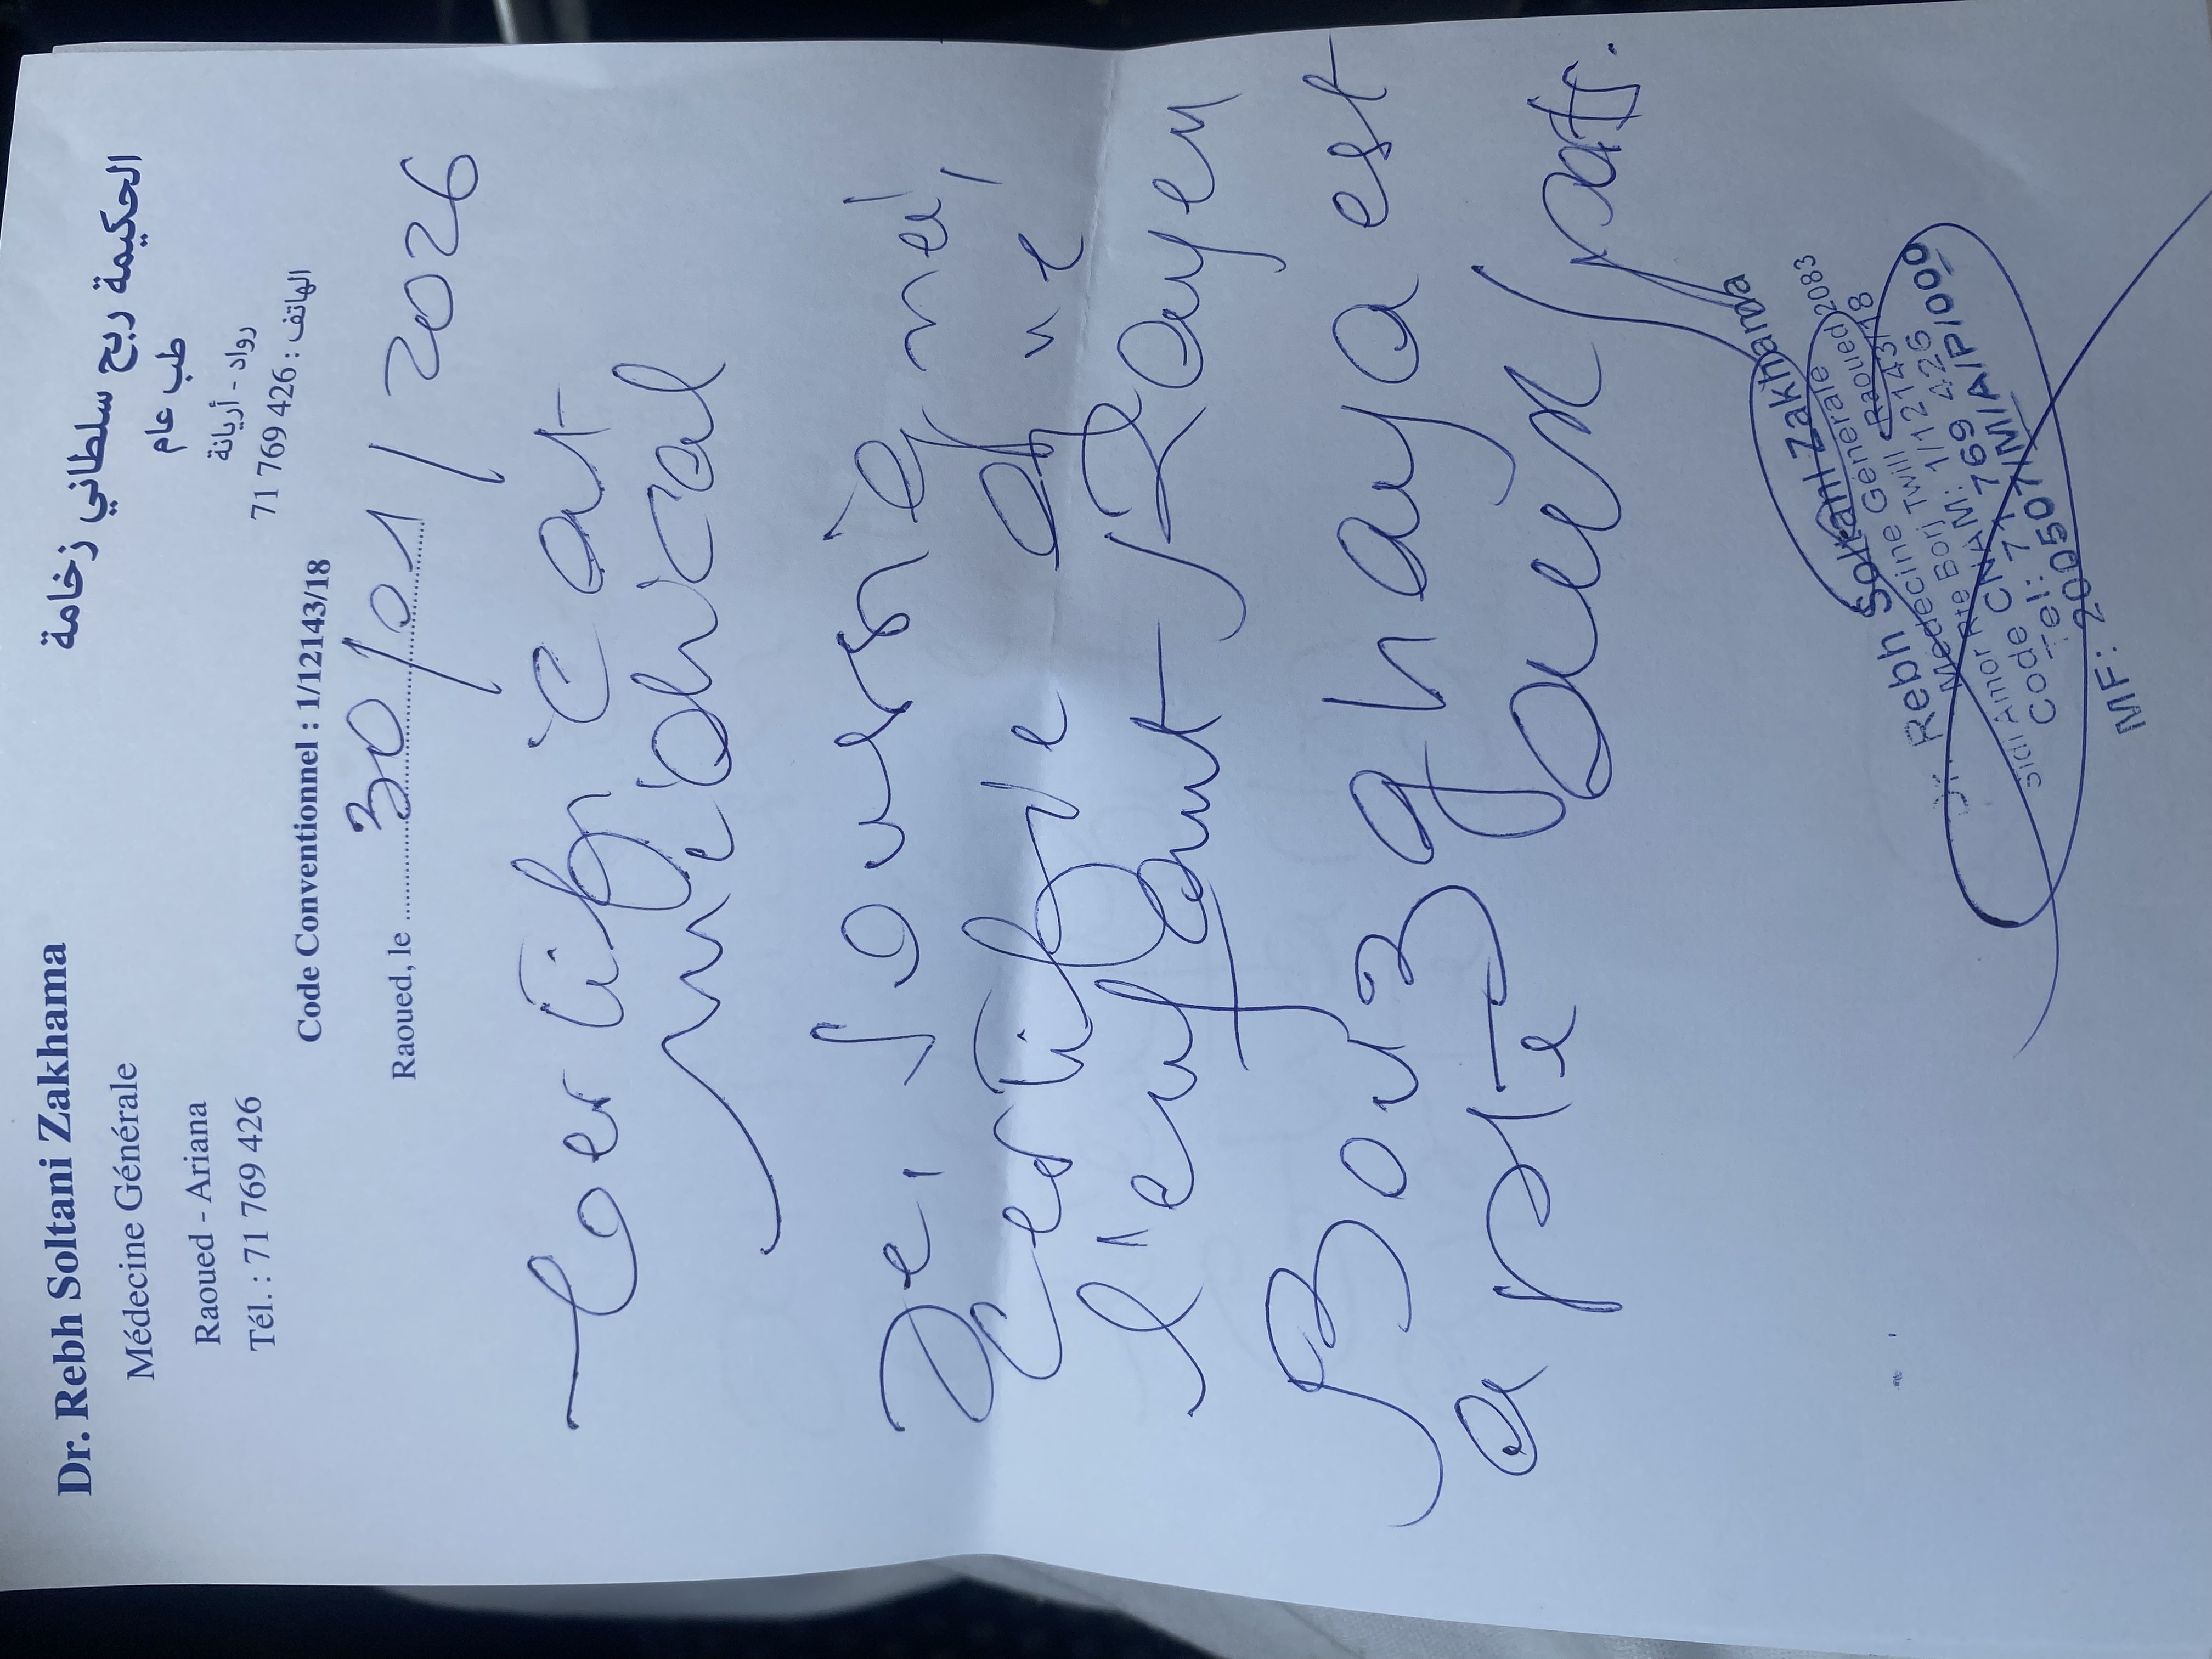 Dr. Rebh Soltani Zakhama
Médecine Générale
Raoued - Ariana
Tél. : 71 769 426
الحكيمة ربح سلطاني زخامة
طب عام
رواد - أريانة
الهاتف : 426 769 71
Code Conventionnel : 1/12143/18
Raoued, le 30/01/2026
Certificat
médical
Je, soussigné,
certifie que
l'enfant Rayen
Bouzghaya est
apte au sport.
Dr. Rebh Soltani Zakhama
Médecine Générale
Sidi Ammor Rte Borj Twill Raoued 2083
Code CNAM: 1/12143/18
Tel: 71 769 426
Code: /M/A/P/000
MF: